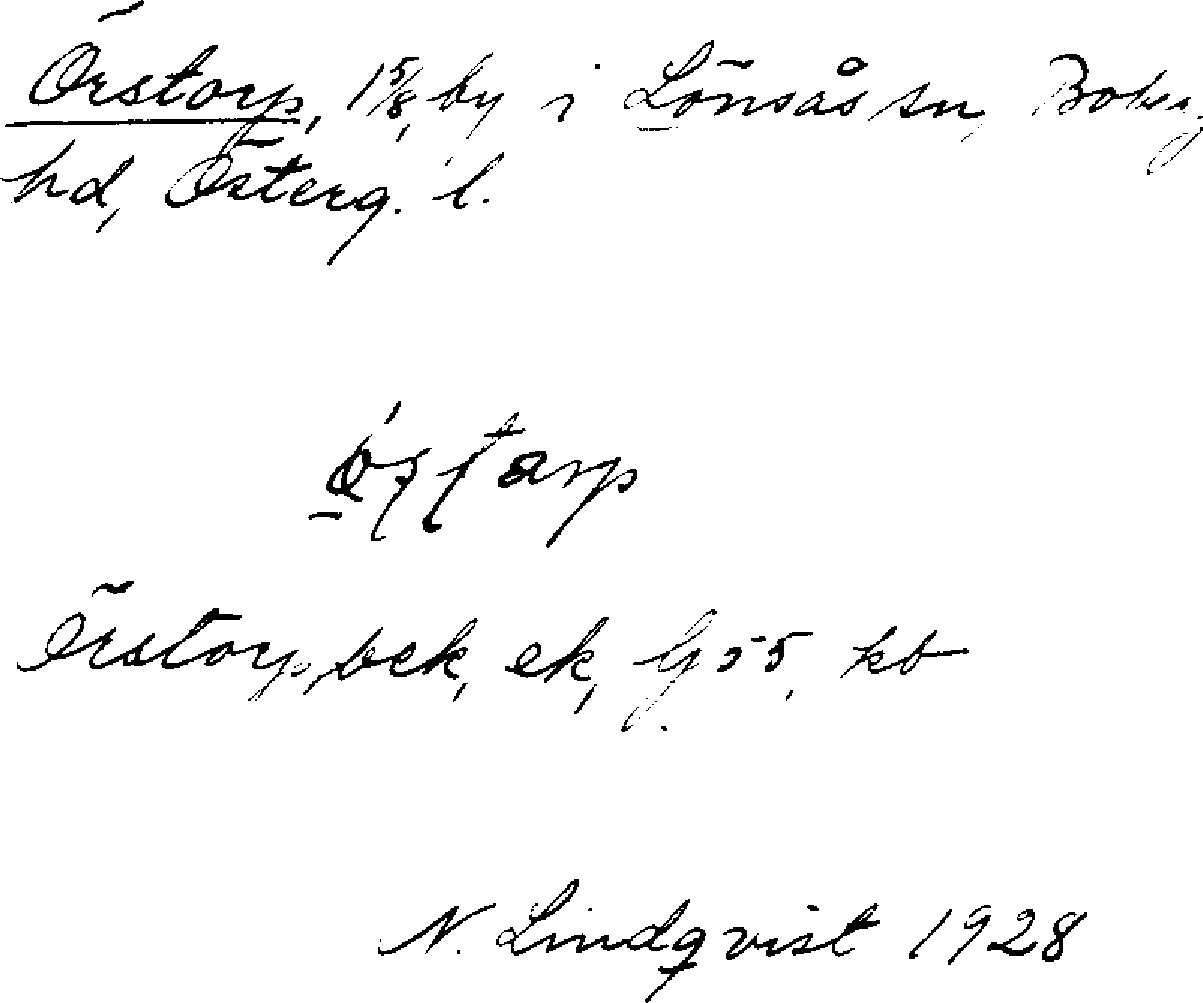 Örstorp, 1 5/8, by i Lönsås sn, Boberg
hd, Österg. l.
Örstorp, bek, ek, G 55, kb
N. Lindqvist 1928